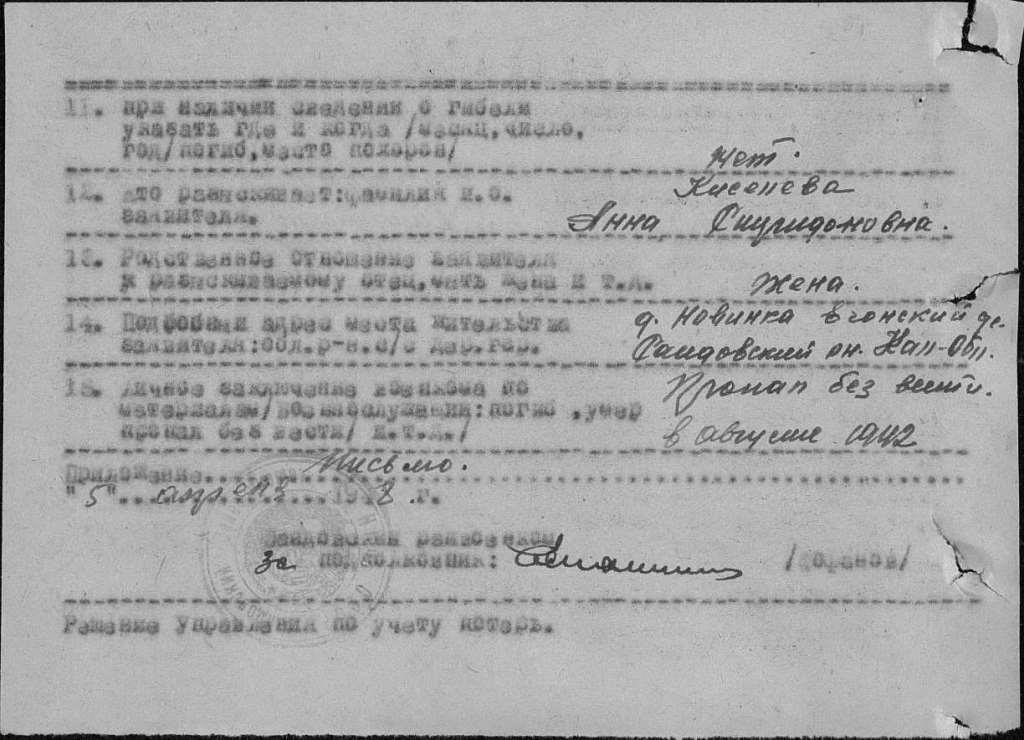 11. При наличии сведений о гибели
указать где и когда /месяц, число,
год/погиб, место похорон/
Нет.
12. Кто разыскивает: фамилия и.о.
заявителя.
Киселева
Анна Спиридоновна.
13. Родственное отношение заявителя
к разыскиваемому отец, мать жена и т.д.
Жена.
14. Подробный адрес места жительства
заявителя: обл. р-н. с/с дер. гор.
д. Новинка
Сандовский рн. Кал-Обл.
15. Личное заключение военкома по
материалам/ военнослужащий: погиб, умер
пропал без вести/ и.т.д./
Пропал без вести.
в августе 1942
Приложение...... Письмо.
"5"... апреля ...1948 г.
Сандовский райвоенком
за подполковник: /
Решение Управления по учету потерь.